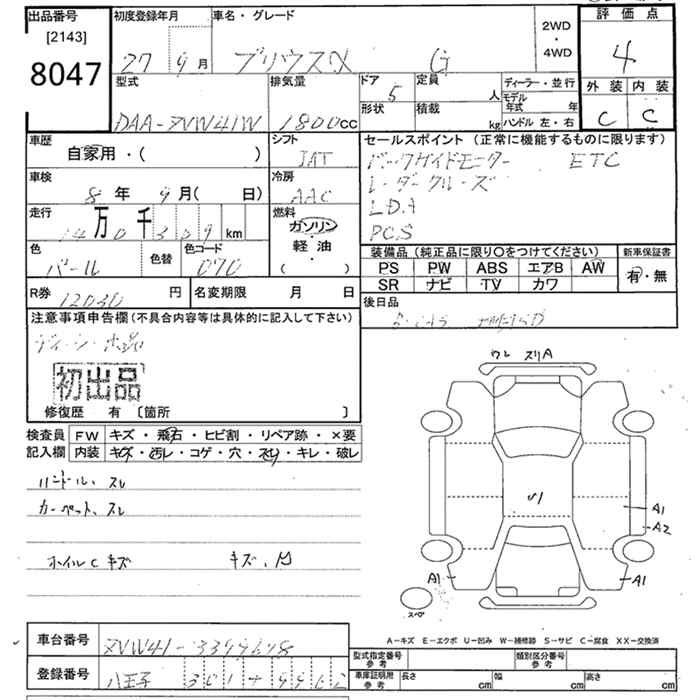 出品番号
[2143]
8047
初度登録年月
27 9月
車名・グレード
プリウスα G
2WD
・
4WD
評価点
4
外装 内装
C C
型式
DAA-ZVW41W
排気量
1800cc
ドア
5
形状
定員
人
積載
kg
ディーラー・並行
モデル年式 年
ハンドル 左・右
車歴
自家用・( )
シフト
IAT
車検
8年 9月( 日)
冷房
AAC
走行
14万0千309km
燃料
ガソリン
・
軽油
( )
色
パール
色替
色コード
070
セールスポイント (正常に機能するものに限ります)
バックガイドモニター ETC
レーダークルーズ
LDA
PCS
装備品 (純正品に限り○をつけてください)
PS PW ABS エアB AW
SR ナビ TV カワ
新車保証書
有・無
R券 12030円
名変期限 月 日
後日品
注意事項申告欄 (不具合内容等は具体的に記入して下さい)
初出品
修復歴 有 〔箇所 〕
検査員記入欄
FW キズ・飛石・ヒビ割・リペア跡・×要
内装 キズ・汚レ・コゲ・穴・スレ・キレ・破レ
ハンドル、スレ
カーペット、スレ
ホイルC キズ
ウレ スリA
A1
A2
A1
A1
スペア
A-キズ E-エクボ U-凹み W-補修跡 S-サビ C-腐食 XX-交換済
車台番号
登録番号
八王子 301
型式指定番号
参考
類別区分番号
参考
車庫証明用
参考
長さ cm
幅 cm
高さ cm